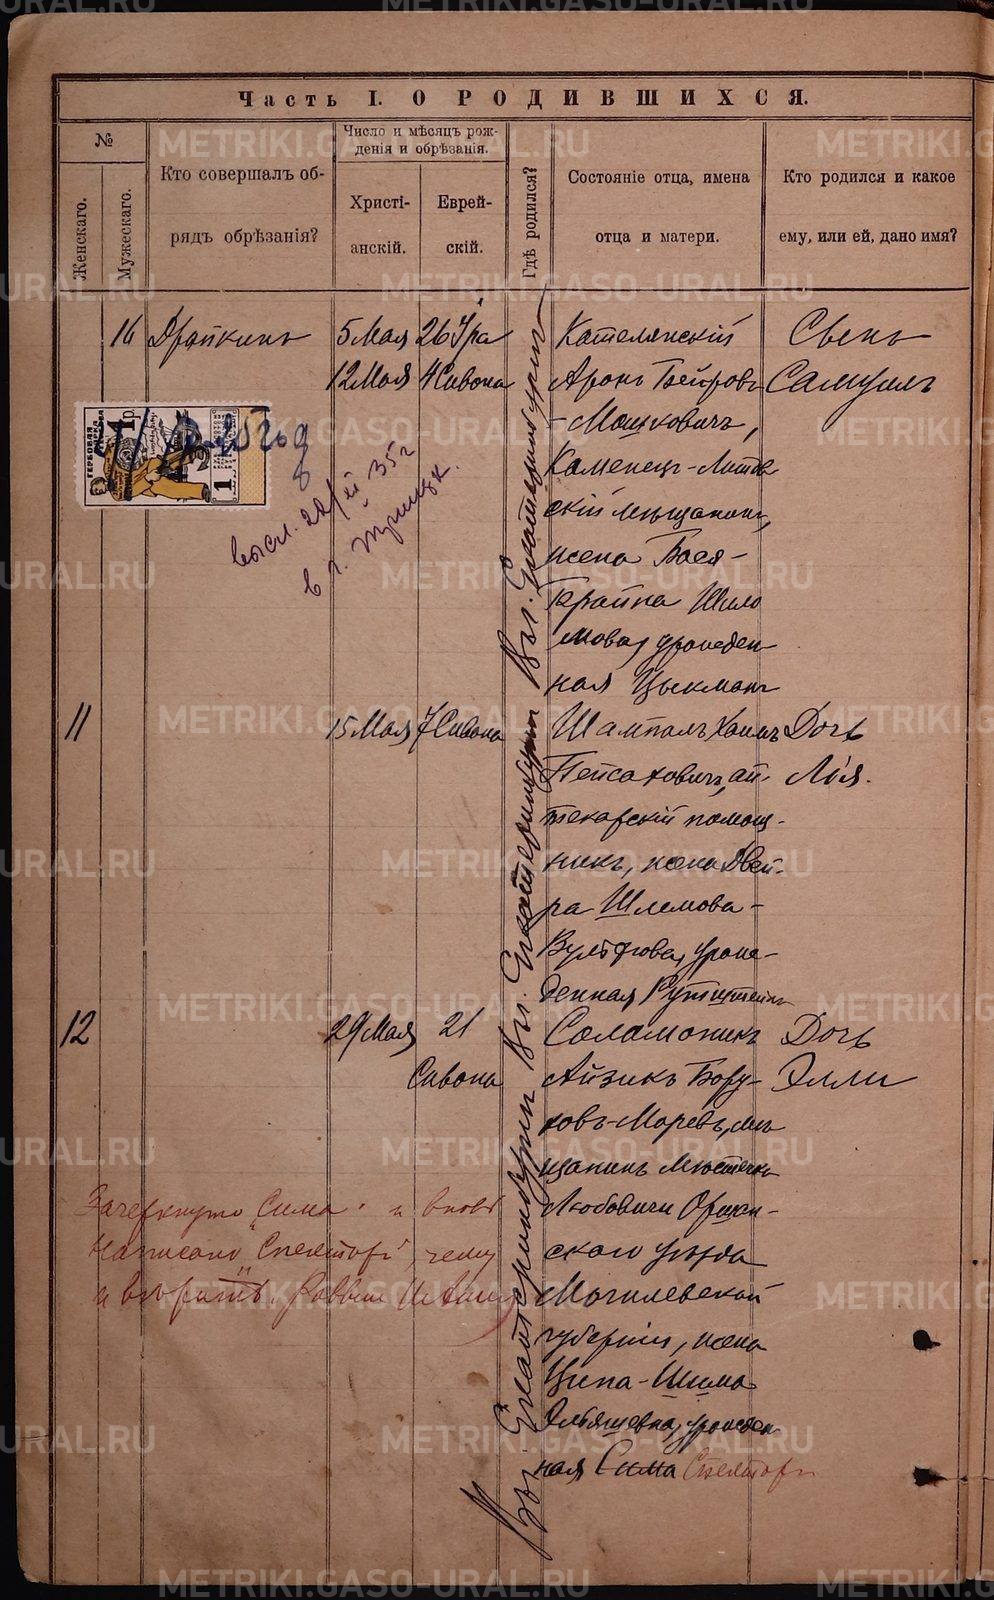 Часть I. О РОДИВШИХСЯ.
№
Женскаго.
Мужескаго.
Кто совершалъ об-
рядъ обрѣзанія?
Число и мѣсяцъ рож-
денія и обрѣзанія.
Христі-
анскій.
Еврей-
скій.
Гдѣ родился?
Состояніе отца, имена
отца и матери.
Кто родился и какое
ему, или ей, дано имя?
16 Драпкинъ 5 Мая 26 Ира
12 Мая 4 Сивона
Въ г. Екатеринбургѣ
Кателянскій
Аронъ Бейровъ
-Мошковичъ,
Каменецъ-Литов
скій мещанинъ,
жена Бася-
Брайна Шило
мова, урожден
ная Цыкманъ
Сынъ
Самуилъ
ГЕРБОВАЯ
МАРКА
1р
1
высл. 22/XII 35г
в г. Троицк.
11 15 Мая 7 Сивона
Въ г. Екатеринбургѣ
Шампалъ Хаимъ
Пейсаховичъ, ап-
текарскій помощ-
никъ, жена Двей-
ра Шлемова-
Вульфова, урож-
денная Рутштейнъ
Дочь
Лія.
12 29 Мая 21
Сивона
Въ г. Екатеринбургѣ
Соламоникъ
Айзикъ Бору-
ховъ-Моревъ, мѣ
щанинъ мѣстечка
Любовичи Оршан-
скаго уѣзда
Могилевской
губерніи, жена
Ципа-Шима
Эльяшевна, урожден
ная Сима Спекторъ
Дочь
Элли
Зачеркнуто "Сима" и вновь
написано "Спекторъ", чему
и вѣрить. Раввинъ